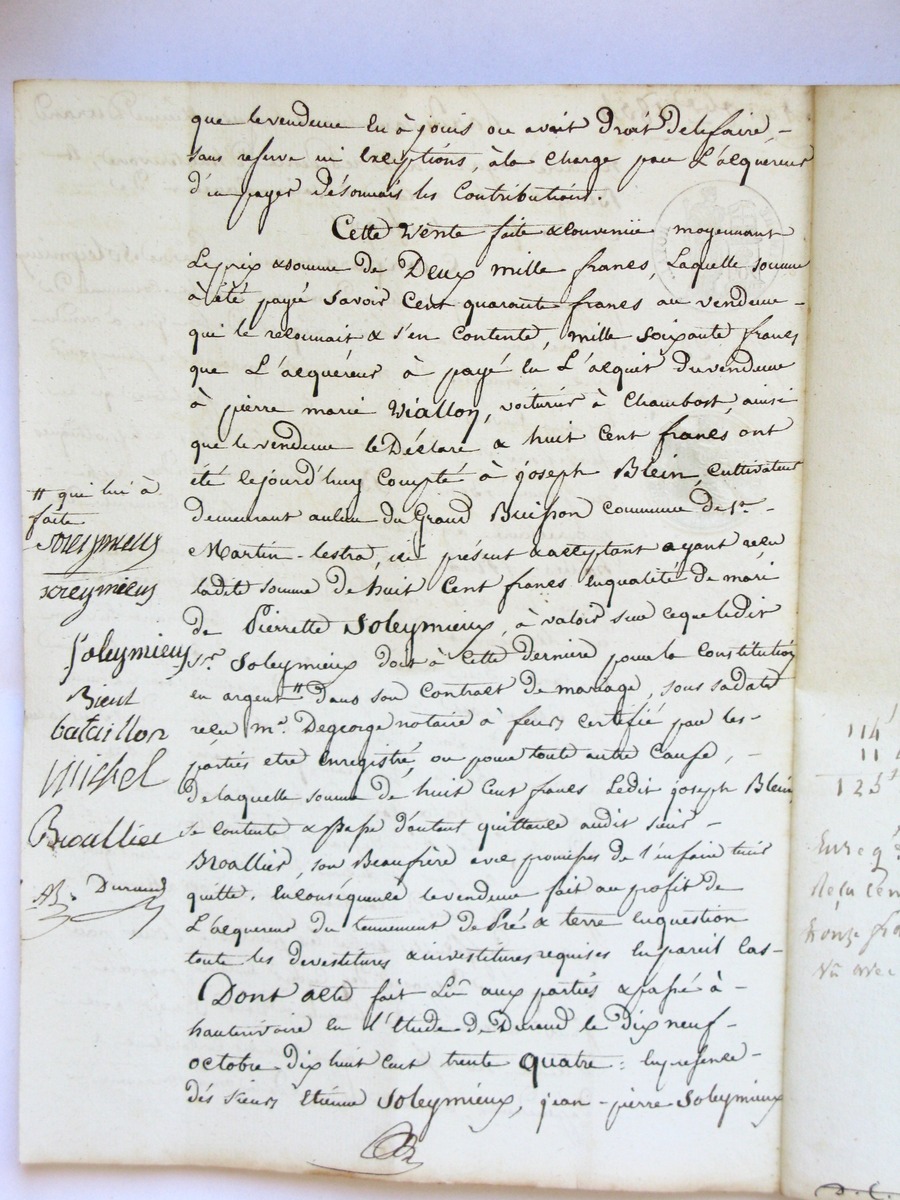 que le vendeur en à jouis ou avait droit de le faire, -
sans reserve ni exceptions, à la charge par L'acquereur
d'en payer Désormais les Contributions.
Cette Vente faite & convenüe moyennant
Le prix & somme de Deux mille francs, Laquelle somme
à été payé savoir Cent quarante francs au vendeur -
qui le reconnait & s'en Contente, mille soixante francs
que L'acquéreur à payé en L'acquit du vendeur
à pierre marie Viallon, voiturier à Chambost, ainsi
que le vendeur le Déclare & huit Cent francs ont
été cejourd'huy Compté à joseph Blein, Cultivateur
demeurant au lieu du Grand Buisson Commune de St -
Martin-lestra, ici présent & acceptant ayant reçu
ladite somme de huit Cent francs en qualité de mari
de Pierrette Soleymieux, à valoir sur ce que ledit
Sr Soleymieux doit à Cette derniere pour la Constitution
en argent # dans son Contract de mariage, sous sa date
reçu Me Degeorge notaire à feurs certifié par les -
parties etre enregistré, ou pour toute autre Cause, -
de laquelle somme de huit Cent francs Ledit joseph Blein
se contente & passe d'autant quittance audit sieur -
Broallier, son Beaufrère avec promesse de l'en faire tenir
quitte. En conséquence le vendeur fait au profit de
L'acquereur du tennement de Pré & terre en question
toute les devestitures & investitures requises en pareil Cas -
Dont acte fait Lû aux parties & passé à -
hauterivoire en l'Etude de Durand le Dix neuf -
octobre dix huit cent trente quatre : en presence -
dés sieurs Etienne Soleymieux, jean-pierre Soleymieux
# qui lui à
faite
Soleymieux
Soleymieux
Soleymieux
Bient
bataillon
Michel
Broallier
Durand
114
11
125
Enreg
Reçu Cen